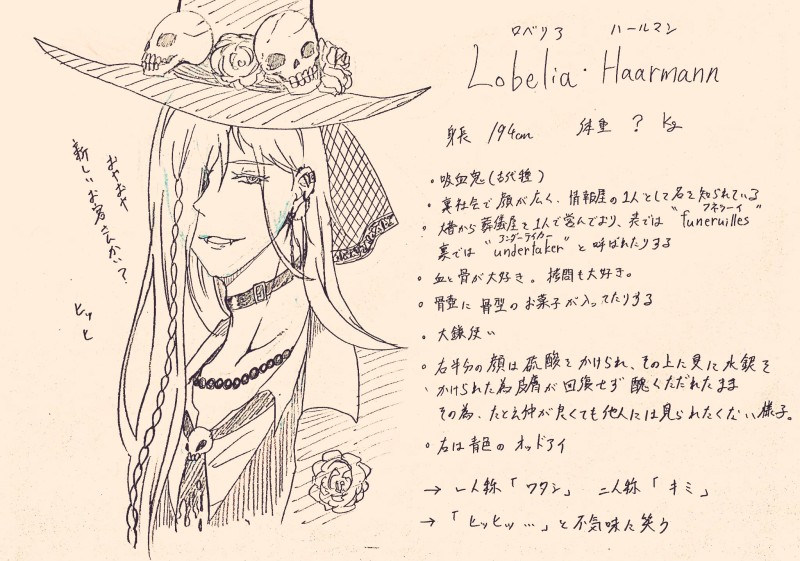 ロベリア ハールマン
Lobelia・Haarmann
身長 194cm 体重 ? kg
・吸血鬼(古代種)
・裏社会で顔が広く、情報屋の1人として名を知られている
・昔から葬儀屋を1人で営んでおり、表では "funerailles"
裏では "undertaker" と呼ばれたりする
アンダーテイカー
・血と骨が大好き。拷問も大好き。
・骨壷に骨型のお菓子が入ってたりする
・大鎌使い
・右半分の顔は硫酸をかけられ、その上に更に水銀を
かけられた為皮膚が回復せず醜くただれたまま
その為、たとえ仲が良くても他人には見られたくない様子。
・右は青色のオッドアイ
→ 一人称「ワタシ」 二人称「キミ」
→ 「ヒッヒッ…」と不気味に笑う
おやおや
新しいお客さんかい?
ヒッヒ